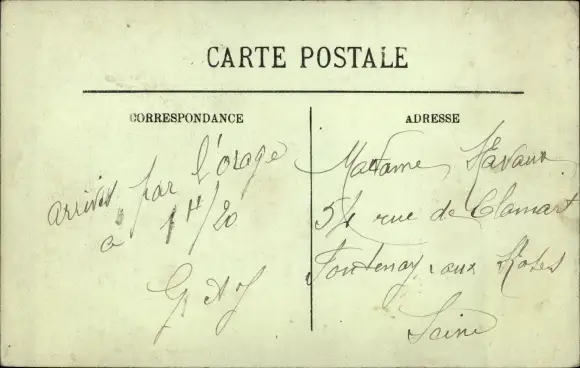 CARTE POSTALE
CORRESPONDANCE
ADRESSE
arrivés par l'orage
à 1H/20
Madame
54 rue de Clamart
Fontenay aux Roses
Seine